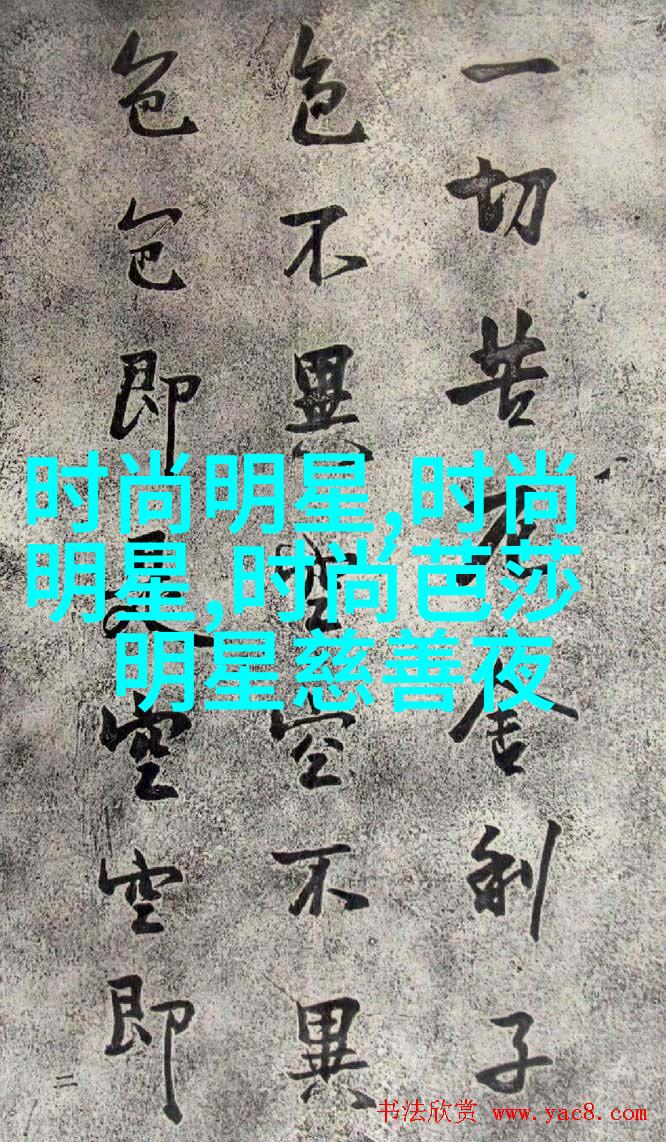 一切苦厄舍利子
色不異空空不異
色色即是空空即
二
时尚明星,时尚
明星,时尚芭莎
明星慈善夜
书法欣赏 www.yac8.com